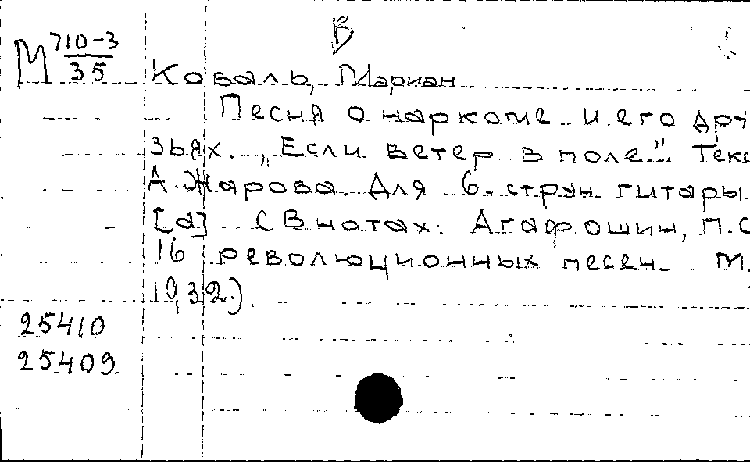 В
М 710-3/35
Коваль, Мариан
Песня о наркоме и его дру
зьях. „Если ветер в поле". Текс
А. Жарова. Для 6-стрun. гитары
[а] (В нотах: Агафошин, П.С
16 революционных песен. М.
1932.)
25410
25409